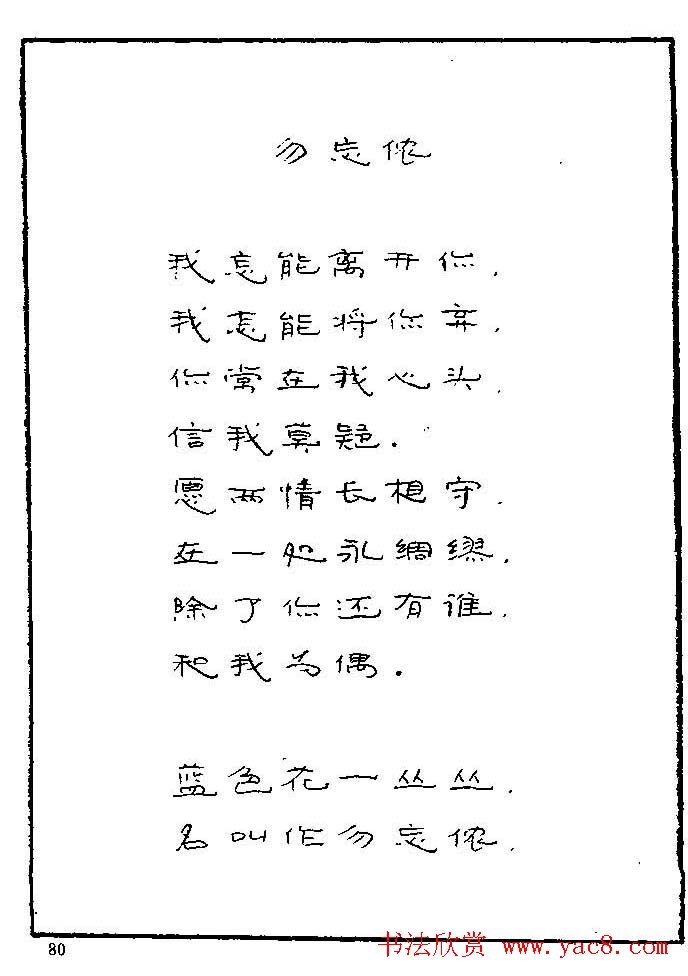 勿忘侬
我怎能离开你，
我怎能将你弃，
你常在我心头，
信我莫疑．
愿两情长相守，
在一处永绸缪，
除了你还有谁，
和我为偶．
蓝色花一丛丛，
名叫作勿忘侬，
80
书法欣赏 www.yac8.com